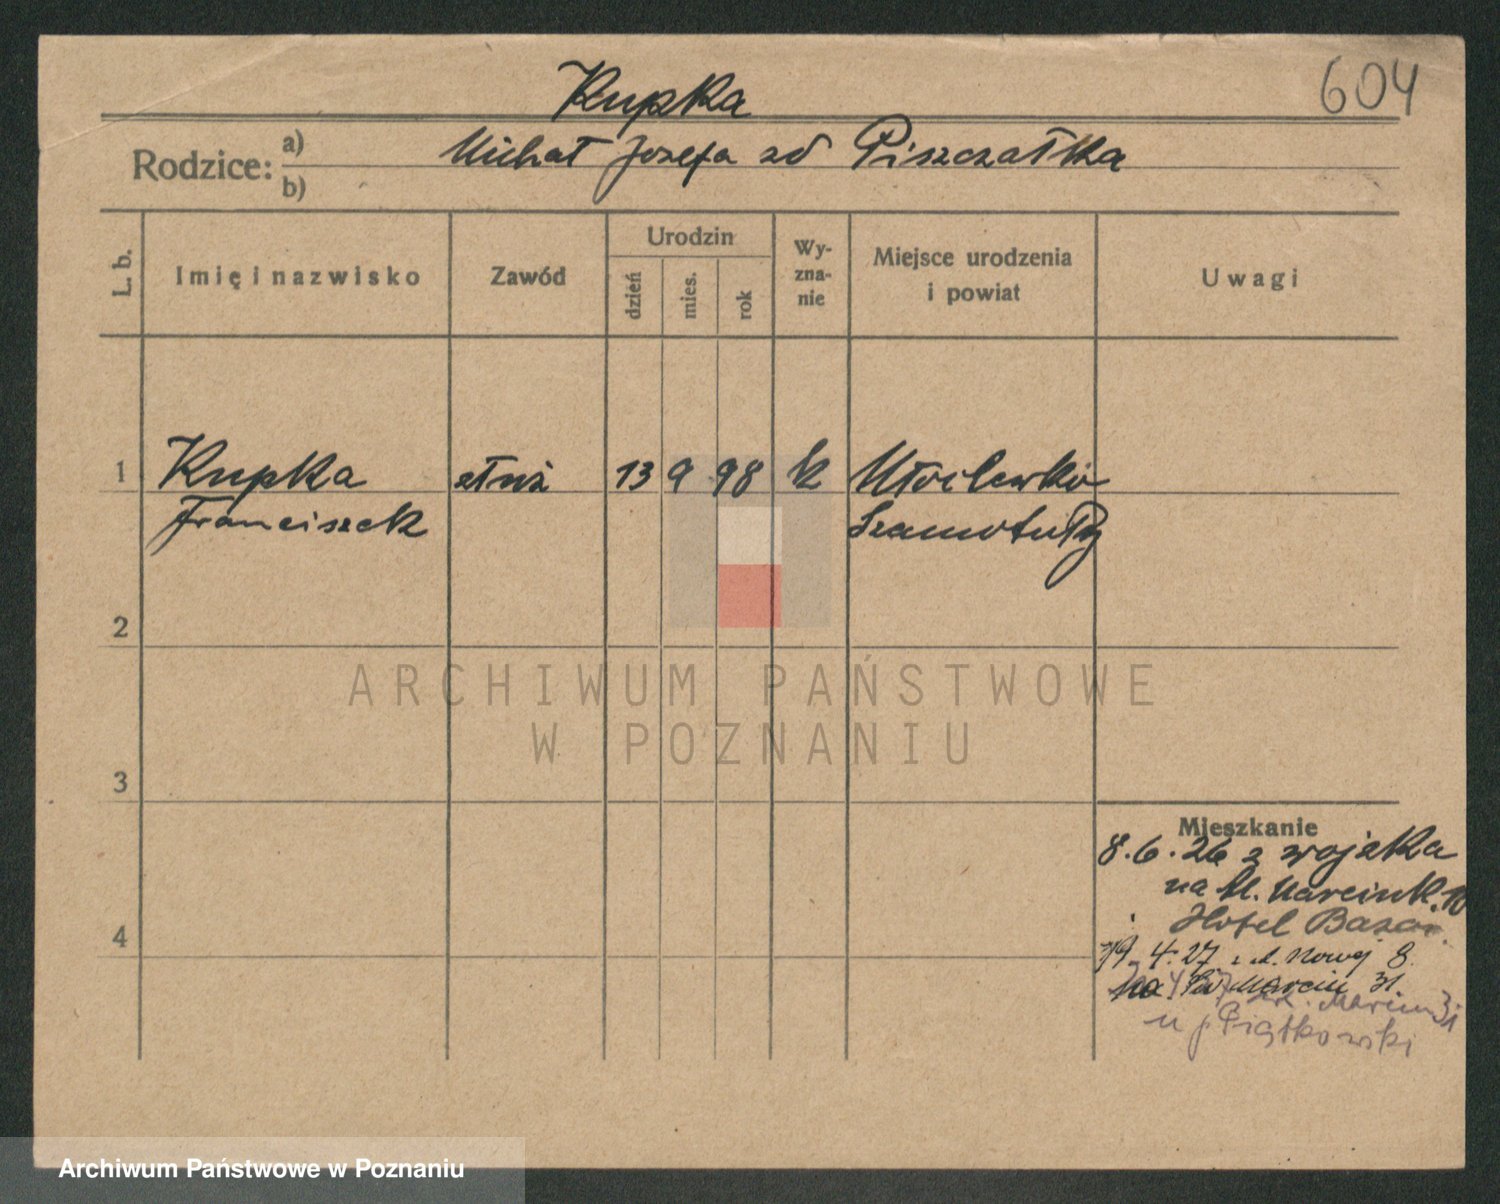 604
Kupka
Rodzice: a) Michał Józefa zd Piszczałka
b)
L. b. Imię i nazwisko Zawód Urodzin dzień mies. rok Wyznanie Miejsce urodzenia i powiat Uwagi
1 Kupka 13 9 98 k
Franciszek Szamotuły
2
ARCHIWUM PAŃSTWOWE
W POZNANIU
3
Mieszkanie
8.6.26 z wojska
na Al. Marcink. 10
Hotel Bazar.
4
19.4.27 z ul. Nowej 8
na Św. Marcin 31
Marcin 31
u p Piątkowski
Archiwum Państwowe w Poznaniu